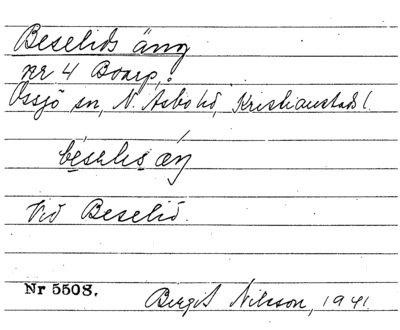 Beselids äng
nr 4 Boarp,
Össjö sn, N. Åsbo hd, Kristianstads l.
béselıs äŋ
Vid Beselid.
Nr 5508.
Birgit Nilsson, 1941